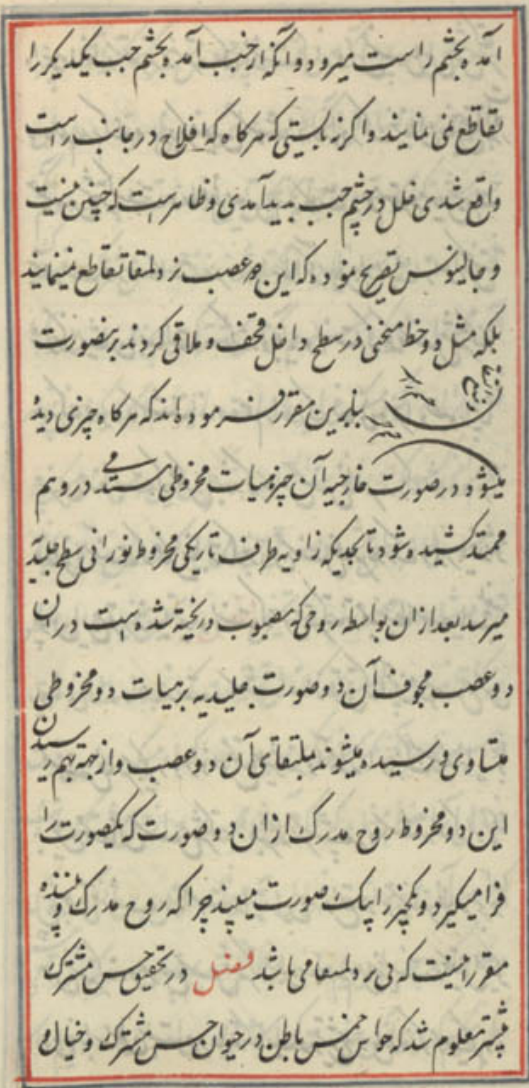 آمده بچشم راست میرود و آنکه از جنب آمده بچشم چپ یکدیکر را
تقاطع نمی نمایند و اکر نه بایستی که هرکاه که افلاح در جانب راست
واقع شدی خلل در چشم چپ پدید آمدی و ظاهرست که چنین نیست
و جالینوس تصریح نموده که این دو عصب نزد ملتقا تقاطع نمینمایند
بلکه مثل دو خط منحنی در سطح داخل قحف و ملاقی کردند برینصورت
بنابرین مقرر فرموده اند که هرکاه چیزی دیده
میشود در صورت خارجیه آن چیز بهیات مخروطی مستدیر در وهم
ممتد کشیده شود تا بحدیکه زاویه طرف تاریکی مخروط نورانی سطح جلیدیه
میرسد بعد از ان بواسطه روحی که مصبوب و ریخته شده است در ان
دو عصب مجوف آن دو صورت جلیدیه بر هیات دو مخروطی
متساوی رسیده میشوند بملتقای آن دو عصب و از جهة بهم رسیدن
این دو مخروط روح مدرک از ان دو صورت که یکصورت را
فرا میکیرد و یکچیز را یک صورت میبیند چرا که روح مدرک و بیننده
مقرر اینست که نزد ملتقا می باشد فصل در تحقیق حس مشترک
پیشتر معلوم شد که حواس خمس باطن در حیوان حس مشترک و خیال و